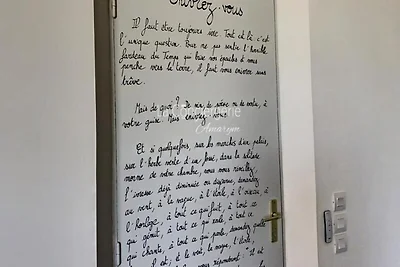 Enivrez-vous
Il faut être toujours ivre. Tout est là: c'est
l'unique question. Pour ne pas sentir l'horrible
fardeau du Temps qui brise vos épaules et vous
penche vers la terre, il faut vous enivrer sans
trêve.
Mais de quoi? De vin, de poésie ou de vertu, à
votre guise. Mais enivrez-vous.
Et si quelquefois, sur les marches d'un palais,
sur l'herbe verte d'un fossé, dans la solitude
morne de votre chambre, vous vous réveillez,
l'ivresse déjà diminuée ou disparue, demandez
au vent, à la vague, à l'étoile, à l'oiseau, à
l'horloge, à tout ce qui fuit, à tout ce
qui gémit, à tout ce qui roule, à tout ce
qui chante, à tout ce qui parle, demandez quelle
heure il est; et le vent, la vague, l'étoile,
vous répondront: "Il est
Amarym